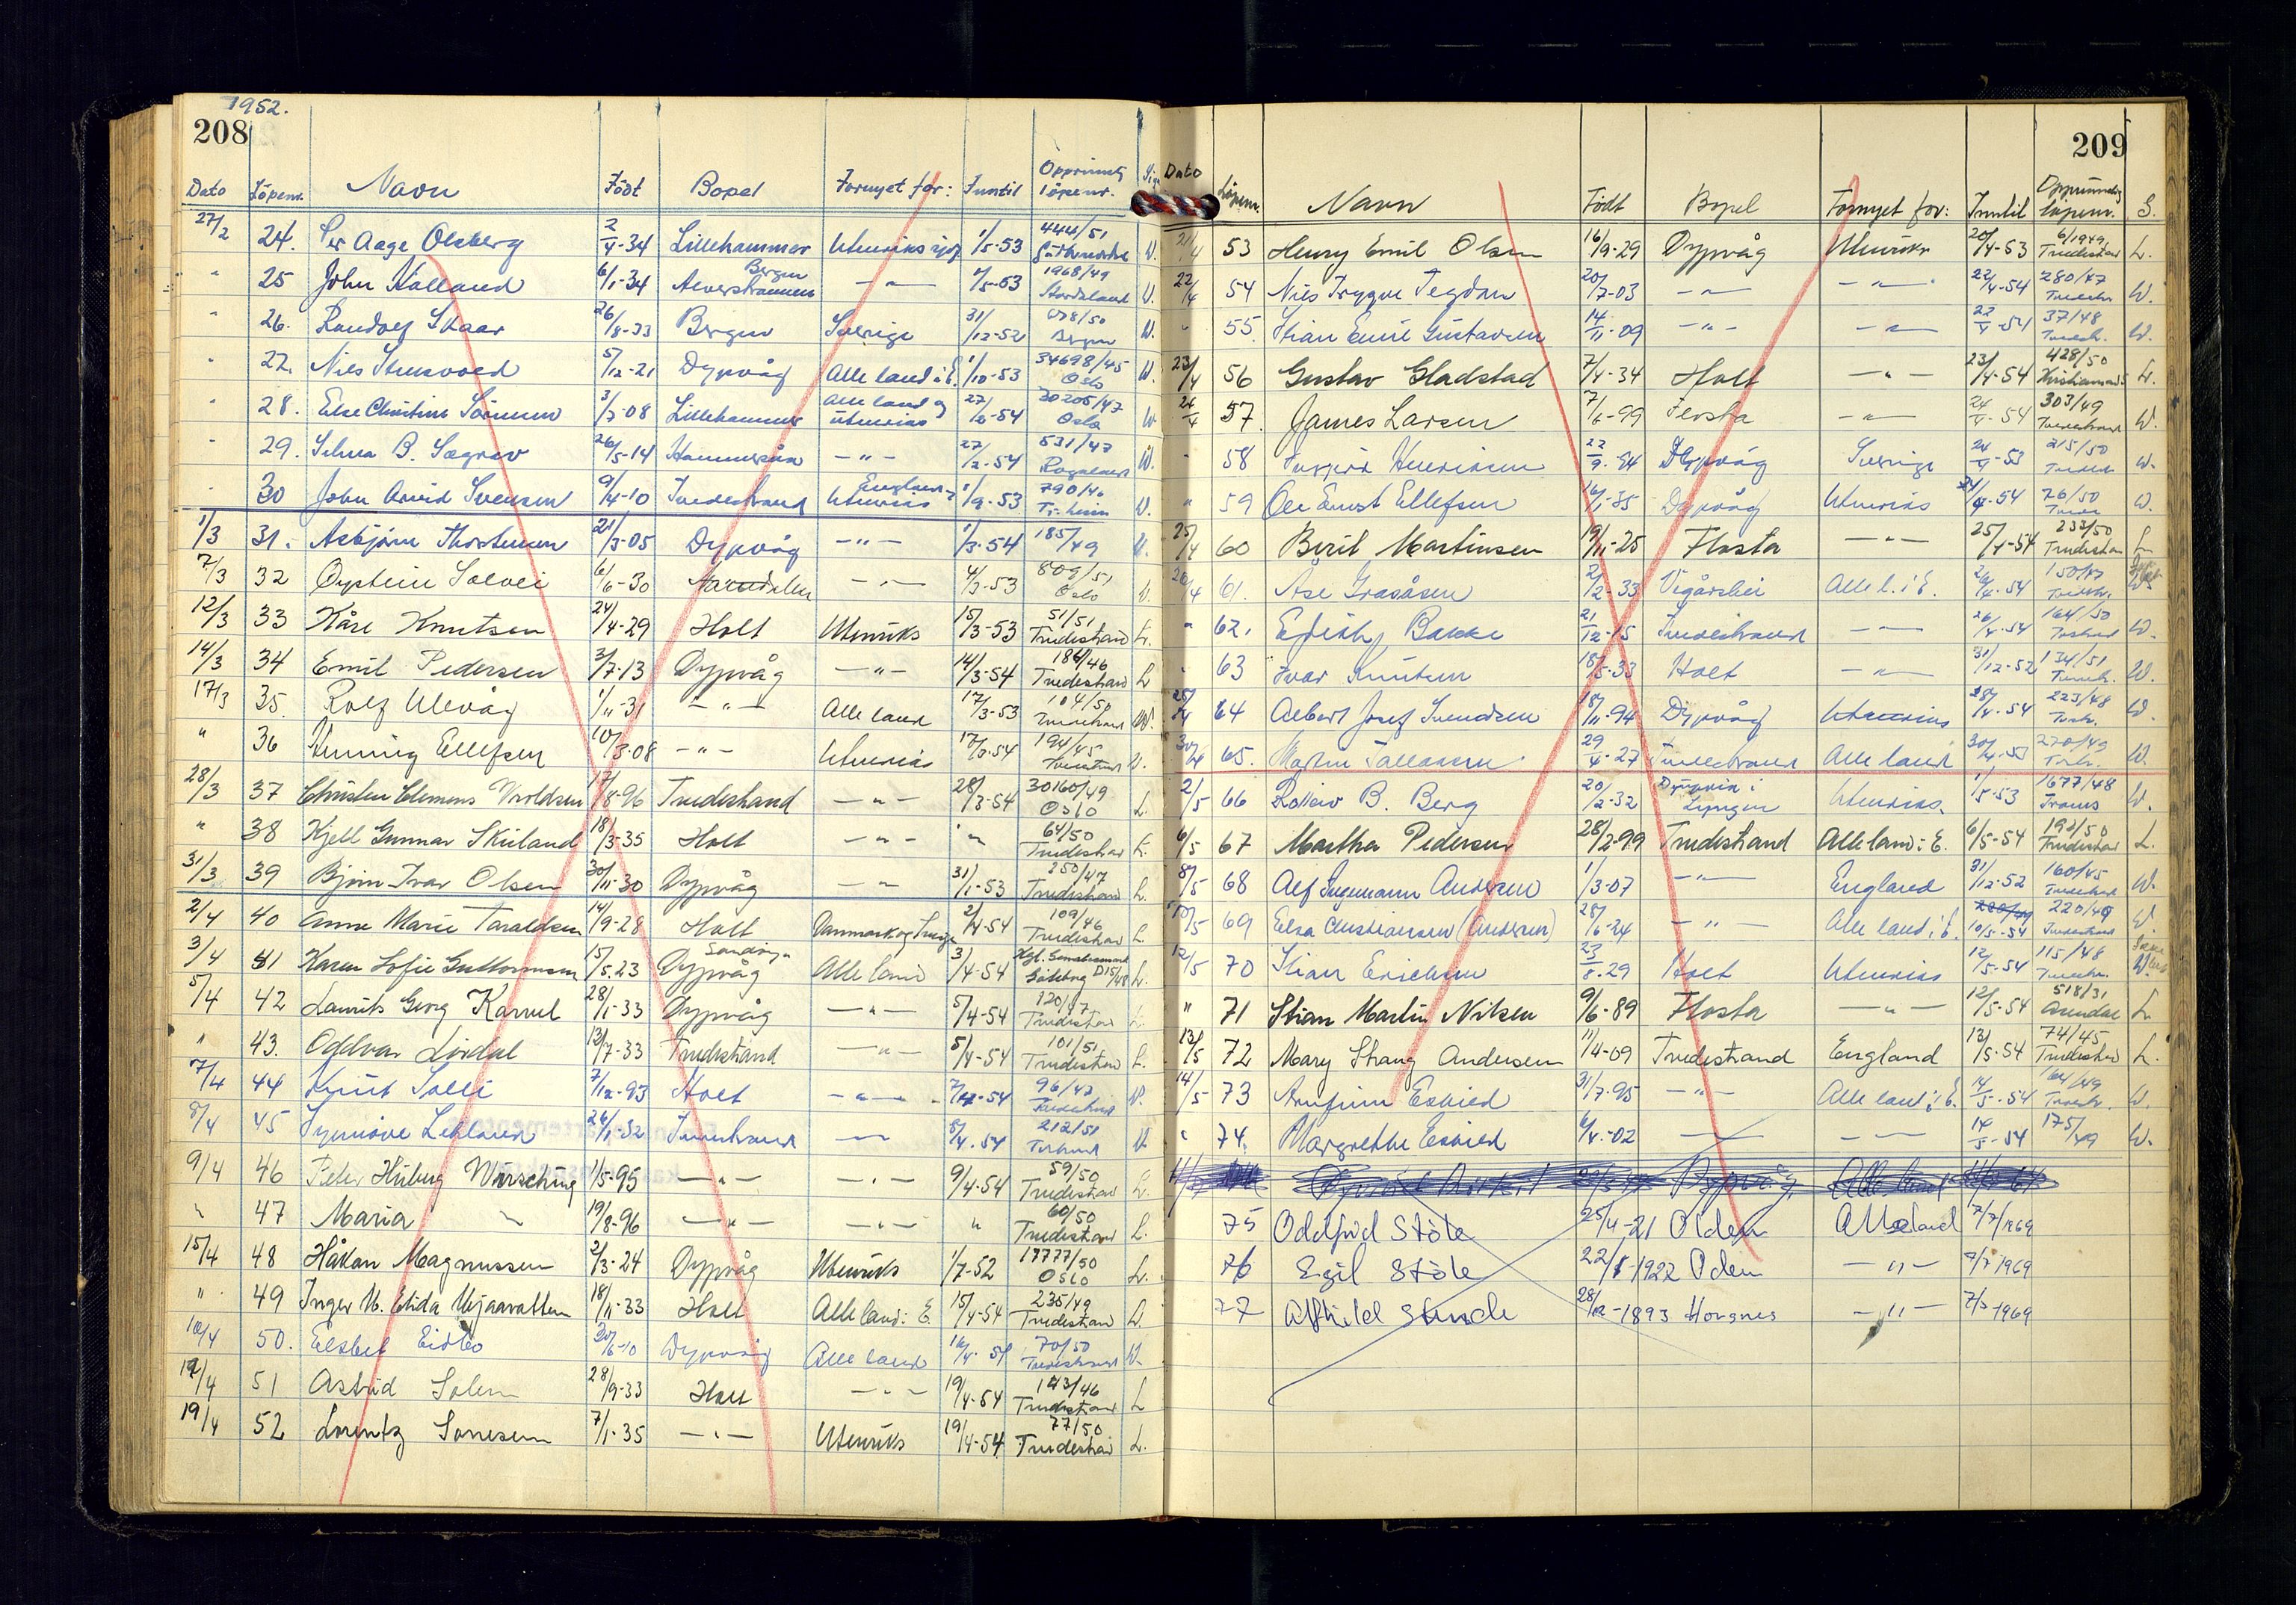 1952.
208
Dato Löpenr. Navn Födt Bopel Fornyet for: Inntil Opprinnelig löpenr. Sig.
27/2 24. Per Aage Olsberg 2/4-34 Lillehammer Utenriks 1/5-53 444/51 W.
" 25 John Halland 6/1-34 Alverstraumen Bergen -"- 1/5-53 1968/49 Hordaland W.
" 26. Randolf Skaar 26/8-33 Bergen Sverige 31/12-52 Bergen W.
" 27. Nils Stensvold 5/12-21 Dypvåg Alle land i E. 1/10-53 34698/45 Oslo W.
" 28. Else Christine Sörensen 3/7-08 Lillehammer Alle land og utenriks 27/2-54 30205/47 Oslo W
" 29. Selma B. Sægrov 26/5-14 -"- 27/2-54 531/47 Rogaland W.
" 30 John Arvid Svensen 9/4-10 Tvedestrand England Utenriks 1/9-53 790/46 Tr.heim W.
1/3 31. Asbjörn Thorstensen 21/3-05 Dypvåg -"- 1/3-54 185/49 W.
7/3 32 Öystein Solvei 6/6-30 -"- 4/3-53 809/51 Oslo W.
12/3 33 Kåre Knutsen 24/4-29 Holt Utenriks 15/3-53 51/51 Tvedestrand L.
14/3 34 Emil Pedersen 3/7-13 Dypvåg -"- 14/3-54 186/46 Tvedestrand L
17/3 35. Rolf Ulevåg 1/11-31 -"- Alle land 17/3-53 104/50 Tvedestrand W.
" 36 Henning Ellefsen 10/3-08 -"- Utenriks 17/3-54 194/45 Tvedestrand W.
28/3 37 Christen Clemens Vroldsen 17/8-96 Tvedestrand -"- 28/3-54 30160/49 Oslo L.
" 38 Kjell Gunnar Skiland 18/3-35 Holt -"- " 64/50 Tvedestrand L.
31/3 39 Björn Ivar Olsen 30/11-30 Dypvåg -"- 31/1-53 250/47 Tvedestrand L.
2/4 40 Anne Marie Taraldsen 14/9-28 Holt Danmark og Sverige 2/4-54 109/46 Tvedestrand L.
3/4 41 Karen Sofie Guttormsen 15/5-23 Sandöya Dypvåg Alle land 3/4-54 Kgl. Göteborg D15/48 L.
5/4 42 Laurits Georg Karvel 28/1-33 Dypvåg -"- 5/4-54 120/47 Tvedestrand L.
" 43. Oddvar Lindal 13/7-33 Tvedestrand -"- 5/4-54 101/51 Tvedestrand L.
7/4 44 Knut Solli 7/12-93 Holt -"- 7/4-54 96/47 Tvedestrand W.
8/4 45 Synnöve Lehland 26/1-32 Tvedestrand -"- 8/4-54 212/51 W
9/4 46 Peter Hilberg Wirsching 1/5-95 -"- -"- 9/4-54 59/50 Tvedestrand L.
" 47 Maria " 19/8-96 -"- -"- " 60/50 Tvedestrand L.
15/4 48 Håkon Magnussen 2/3-24 Dypvåg Utenriks 1/7-52 17777/50 Oslo L.
" 49 Inger M. Elida Mjaavatten 18/11-33 Holt Alle land i E. 15/4-54 235/49 Tvedestrand L.
16/4 50. Elsbet Eidbo 20/6-10 Dypvåg Alle land 16/4-54 70/50 Tvedestrand W.
19/4 51 Astrid Solem 28/9-33 Holt -"- 19/4-54 143/46 Tvedestrand L
19/4 52 Lorentz Sörensen 7/1-35 -"- Utenriks 19/4-54 77/50 Tvedestrand L.
209
Dato Löpenr. Navn Födt Bopel Fornyet for: Inntil Opprinnelig löpenr. S.
21/4 53 Henry Emil Olsen 16/9-29 Dypvåg Utenriks 20/4-53 6/1949 Tvedestrand L.
22/4 54 Nils Trygve Tegdan 20/7-03 -"- -"- 22/4-54 280/47 W.
" 55. Stian Emil Gustavsen 14/11-09 -"- -"- 22/4-54 37/48 W.
23/4 56 Gustav Gladstad 7/4-34 Holt -"- 23/4-54 428/50 Kristiansand S L.
24/4 57. James Larsen 7/6-99 Flosta -"- 24/4-54 303/49 Tvedestrand W.
" 58 Henriksen 22/9-94 Dypvåg Sverige 24/4-53 215/50 W.
" 59 Ole Ernst Ellefsen 16/1-35 Dypvåg Utenriks 24/4-54 76/50 W.
25/4 60 Berit Martinsen 19/11-25 Flosta -"- 25/4-54 233/50 Tvedestrand L
26/4 61. Åse Gråsåsen 2/2-33 Vegårshei Alle l. i E. 26/4-54 150/47 W.
" 62. Edith Bakke 21/12-15 Tvedestrand -"- 26/4-54 164/50 W.
" 63 Ivar Knutsen 18/5-33 Holt -"- 31/12-52 134/51 W.
28/4 64 Albert Josef Svendsen 18/11-94 Dypvåg Utenriks 28/4-54 223/48 W.
30/4 65. Martin Tallaksen 29/4-27 Tvedestrand Alle land 30/4-53 270/49 W.
2/5 66 Rolleiv B. Berg 20/2-32 Djupvik i Lyngen Utenriks. 1/5-53 1677/48 Troms W.
6/5 67 Martha Pedersen 28/2-99 Tvedestrand Alle land i E. 6/5-54 192/50 Tvedestrand L.
8/5 68 Alf Ingemann Andersen 1/3-07 -"- England 31/12-52 160/45 Tvedestrand W.
10/5 69 Elsa Christiansen (Andersen) 28/6-24 -"- Alle land i E. 10/5-54 220/49 Tvedestrand W.
12/5 70 Stian Ericksen 23/8-29 Holt Utenriks 12/5-54 115/48 W.
" 71 Stian Martin Nilsen 9/6-89 Flosta -"- 12/5-54 518/31 Arendal L
13/5 72 Mary Strang Andersen 11/4-09 Tvedestrand England 13/5-54 74/45 Tvedestrand L.
14/5 73 Arnfinn Eskild 31/7-95 -"- Alle land i E. 14/5-54 164/49 W.
" 74. Margrethe Eskild 6/4-02 -"- 14/5-54 175/49 W.
Dypvåg Alle land
75 Oddfrid Stöle 25/4-21 Olden Alle land 7/7/1969
76 Egil Stöle 22/8-1922 Olden -"- 7/7 1969
77 Alfhild Sunde 28/12-1893 Hornnes -"- 7/7 1969